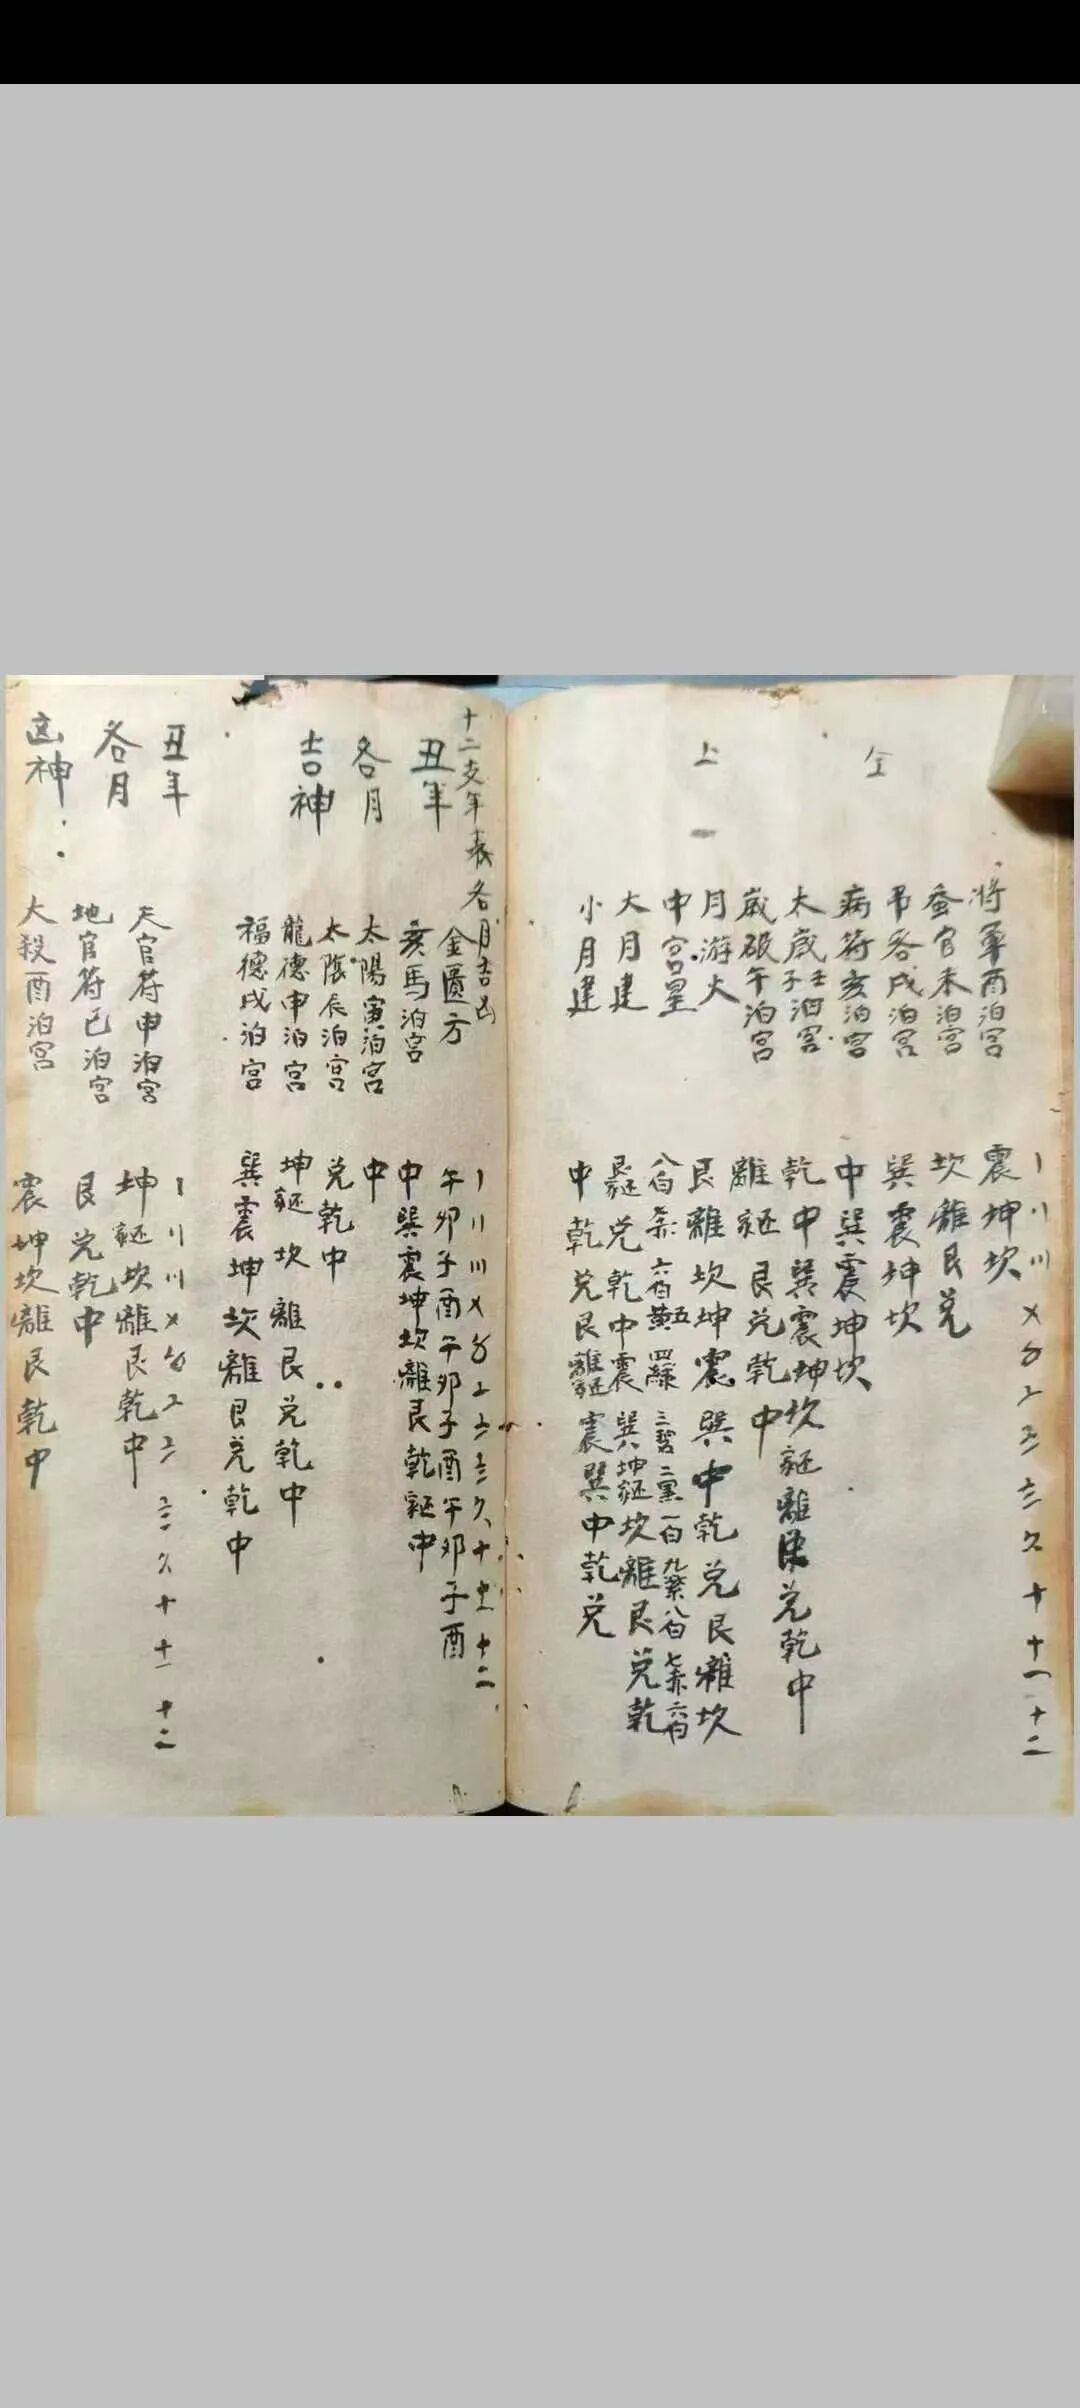 仝
上
〡〢〣〤〥〦〧〨〩十十一十二
將軍酉泊宮
震坤坎
蚕官未泊宮
坎離艮兑
吊客戌泊宮
巽震坤坎
病符亥泊宮
中巽震坤坎
太歲子壬泊宮
乾中巽震坤坎 離艮兑乾中
歲破午泊宮
離 艮兑乾中
月游火
艮離坎坤震巽中乾兑艮離坎
中宮星
八白七赤六白五黃四綠三碧二黑一白九紫八白七赤六白
大月建
艮 兑乾中震巽坤 坎離艮兑乾
小月建
中乾兑艮離 震巽中乾兑
十二支年表各月吉凶
丑年
各月
吉神
〡〢〣〤〥〦〧〨〩十十一十二
金匱方
午卯子酉午卯子酉午卯子酉
亥馬泊宮
中巽震坤坎離艮乾 中
太陽寅泊宮
中
太陰辰泊宮
兑乾中
龍德申泊宮
坤 坎離艮兑乾中
福德戌泊宮
巽震坤坎離艮兑乾中
丑年
各月
凶神
〡〢〣〤〥〦〧〨〩十十一十二
天官符申泊宮
坤 坎離艮乾中
地官符巳泊宮
艮兑乾中
大殺酉泊宮
震坤坎離艮乾中